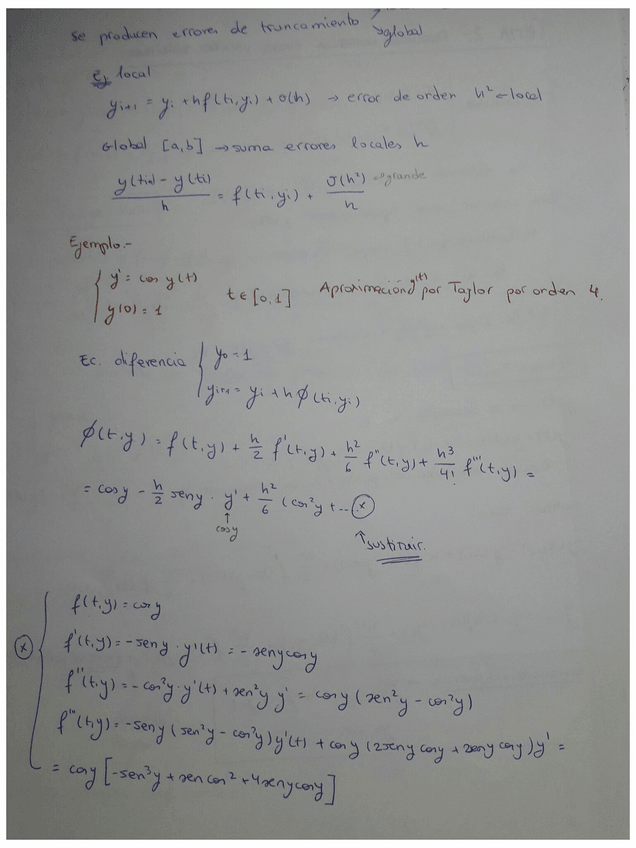 Se producen errores de truncamiento ↗ ↘global
Ej local
yi+1 = yi + hf(ti,yi) + O(h) → error de orden h² ← local
Global [a,b] → suma errores locales h
(y(ti+1) - y(ti))/h = f(ti,yi) + O(h²)/h → grande
Ejemplo.-
{ y' = cos y(t)
y(0) = 1
t ∈ [0,1] Aproximación y(t) por Taylor por orden 4.
Ec. diferencia { y0 = 1
yi+1 = yi + h ϕ(ti,yi)
ϕ(t,y) = f(t,y) + h/2 f'(t,y) + h²/6 f''(t,y) + h³/4! f'''(t,y) =
= cos y - h/2 sen y · y' + h²/6 (cos²y + ... ⓧ
↑ cos y
↑ sustituir.
ⓧ { f(t,y) = cos y
f'(t,y) = -sen y · y'(t) = -sen y cos y
f''(t,y) = -cos²y · y'(t) + sen²y y' = cos y (sen²y - cos²y)
f'''(t,y) = -sen y (sen²y - cos²y) y'(t) + cos y (2 sen y cos y + 2 sen y cos y) y' =
= cos y [-sen³y + sen cos² + 4 sen y cos y]